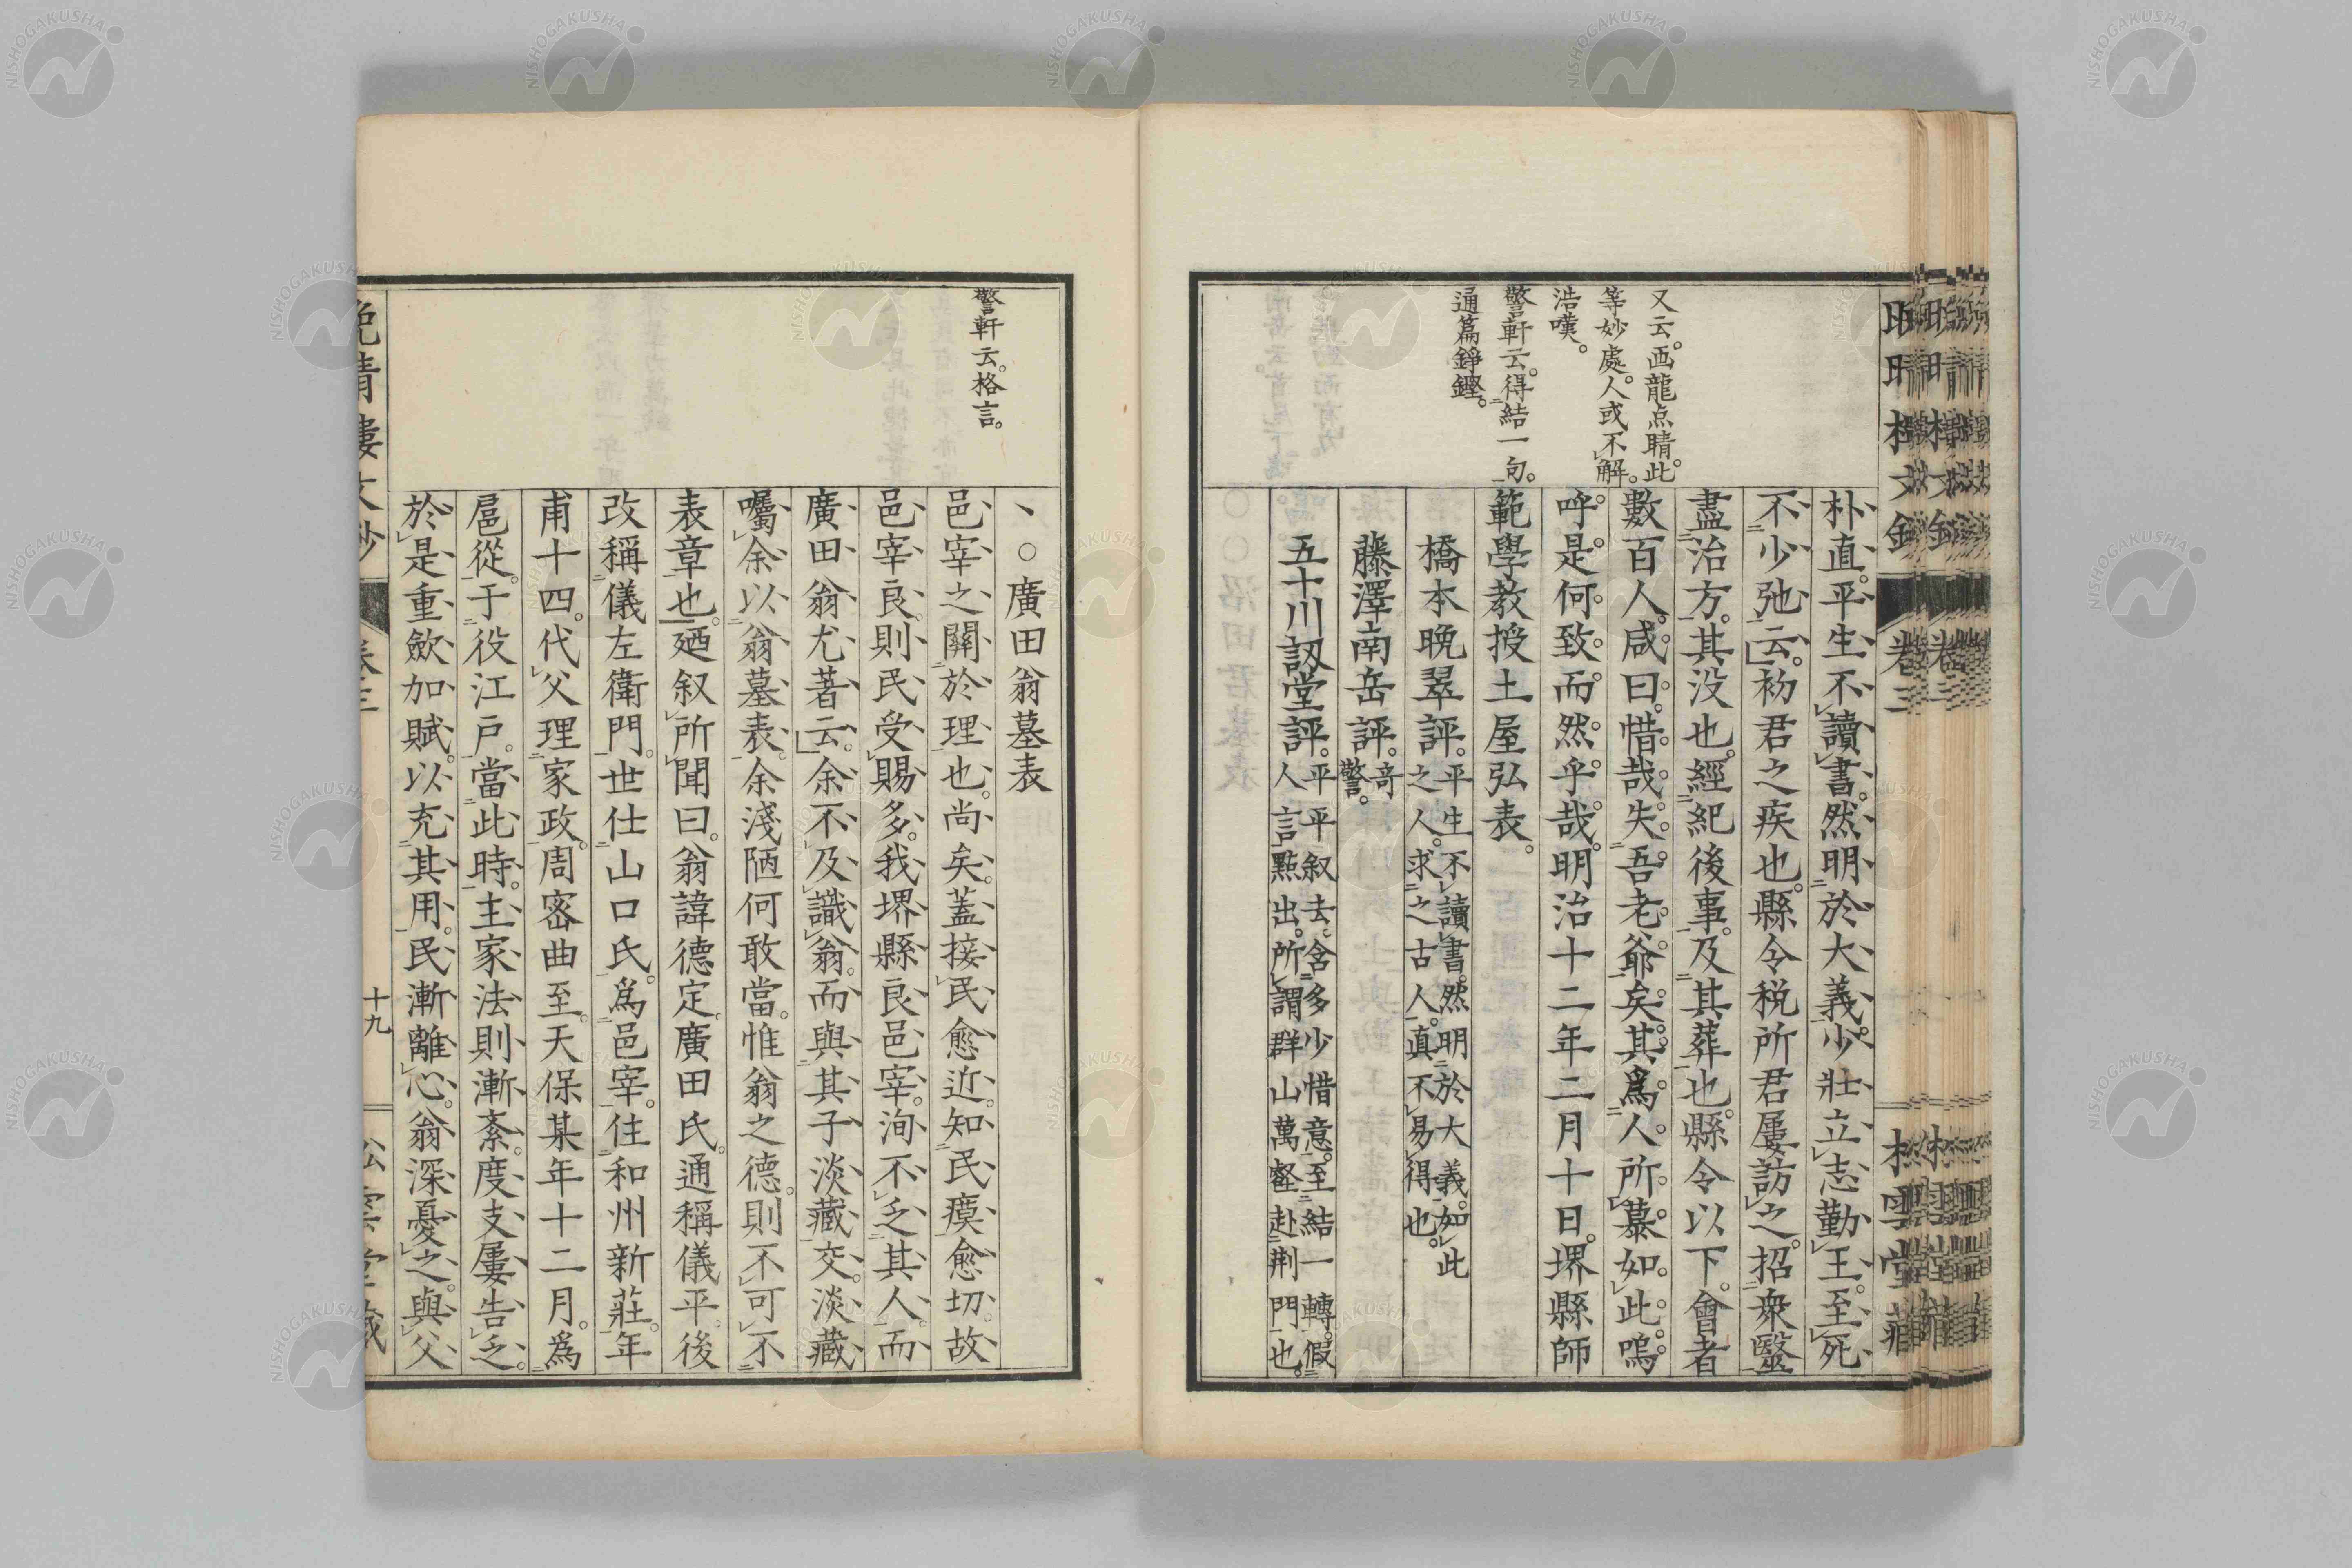 又云。画龍点睛此
等妙處。人或不解。
浩嘆。
警軒云。得結一句。
通篇錚鏗。
朴直。平生不讀書。然明於大義。少壯立志勤王。至死
不少弛云。初君之疾也。縣令税所君屢訪之。招衆醫
盡治方。其没也。經紀後事。及其葬也。縣令以下。會者
數百人。咸曰。惜哉。失吾老爺矣。其爲人所慕如此。嗚
呼。是何致而然乎哉。明治十二年二月十日。堺縣師
範學教授土屋弘表。
橋本晩翠評。平生不讀書。然明於大義。如此
之人。求之古人。眞不易得也。
藤澤南岳評。奇
警。
五十川訒堂評。平平叙去。含多少惜意。至結一轉。假
人言點出。所謂群山萬壑赴荆門也。
警軒云。格言。
、○廣田翁墓表
邑宰之關於理也。尚矣。蓋接民愈近。知民瘼愈切。故
邑宰良。則民受賜多。我堺縣良邑宰。洵不乏其人。而
廣田翁尤著云。余不及識翁。而與其子淡藏交。淡藏
囑余以翁墓表。余淺陋何敢當。惟翁之德。則不可不
表章也。廼叙所聞曰。翁諱德定。廣田氏。通稱儀平。後
改稱儀左衛門。世仕山口氏。爲邑宰。住和州新莊。年
甫十四。代父理家政。周密曲至。天保某年十二月。爲
扈從。于役江戸。當此時。主家法則漸紊。度支屢告乏。
於是重歛加賦。以充其用。民漸離心。翁深憂之。與父
晩晴樓文鈔 卷三 十九